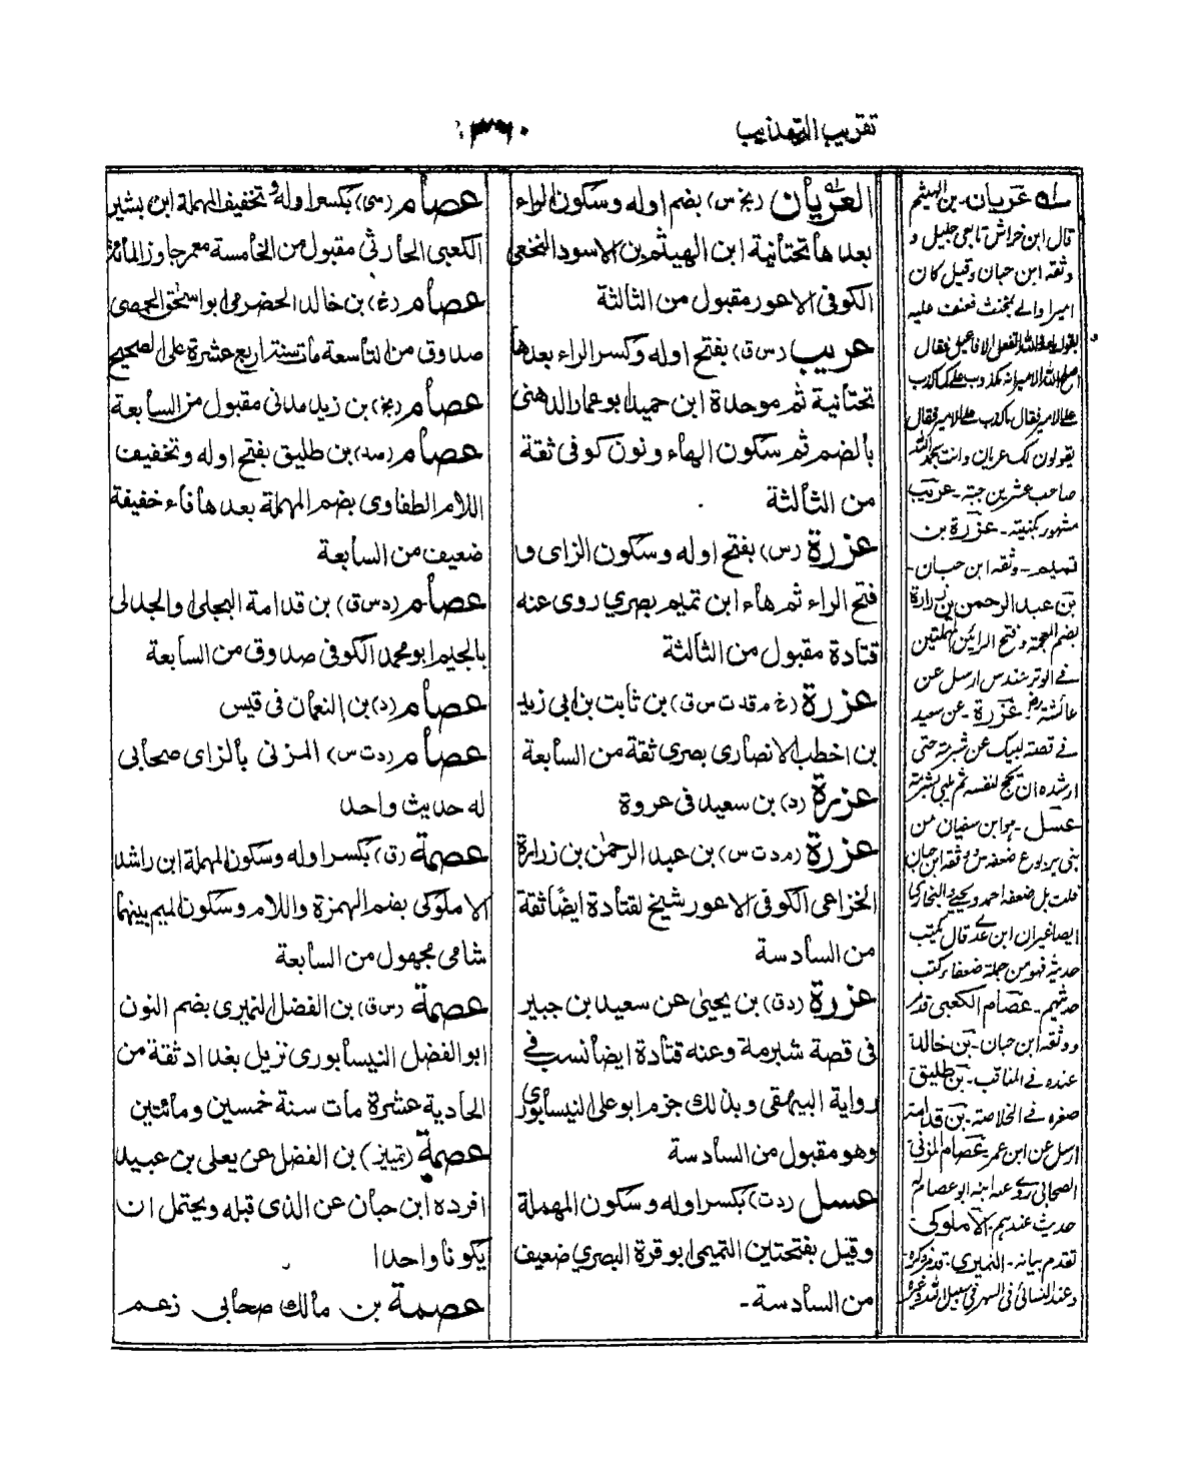 تقريب التهذيب
٣٦٠
العريان (بخ س) بضم اوله وسكون الراء
بعدها تحتانية ابن الهيثم بن الاسود النخعى
الكوفى الاعور مقبول من الثالثة
عريب (س ق) بفتح اوله وكسر الراء بعدها
تحتانية ثم موحدة ابن حميد ابو عمار الدهنى
بالضم ثم سكون الهاء ونون كوفى ثقة
من الثالثة
عزرة (س) بفتح اوله وسكون الزاى و
فتح الراء ثم هاء ابن تميم بصري روى عنه
قتادة مقبول من الثالثة
عزرة (خ م قد ت س ق) بن ثابت بن ابى زيد
بن اخطب الانصارى بصرى ثقة من السابعة
عزرة (د) بن سعيد فى عروة
عزرة (م د ت س) بن عبد الرحمٰن بن زرارة
الخزاعى الكوفى الاعور شيخ لقتادة ايضًا ثقة
من السادسة
عزرة (د ق) بن يحيىٰ عن سعيد بن جبير
فى قصة شبرمة وعنه قتادة ايضا نسب فے
رواية البيهقى وبذلك جزم ابو على النيسابوري
وهو مقبول من السادسة
عسل (د ت) بكسر اوله وسكون المهملة
وقيل بفتحتين التميمى ابو قرة البصري ضعيف
من السادسة -
عصام (سى) بكسر اوله و تخفيف المهملة ابن بشير
الكعبى الحارثى مقبول من الخامسة معمر جاوز المائة
عصام (خ) بن خالد الحضرمى ابو اسحٰق الحمصى
صدوق من التاسعة مات سنة اربع عشرة على الصحيح
عصام (بخ) بن زيد مدنى مقبول من السابعة
عصام (مد) بن طليق بفتح اوله وتخفيف
اللام الطفاوى بضم المهملة بعدها فاء خفيفة
ضعيف من السابعة
عصام (د س ق) بن قدامة البجلى او الجدلى
بالجيم ابو محمد الكوفى صدوق من السابعة
عصام (د) بن النعمان فى قيس
عصام (د ت س) المزنى بالزاى صحابى
له حديث واحد
عصمة (ق) بكسر اوله وسكون المهملة ابن راشد
الاملوكى بضم الهمزة واللام وسكون الميم بينهما
شامى مجهول من السابعة
عصمة (س ق) بن الفضل النميرى بضم النون
ابو الفضل النيسابورى نزيل بغداد ثقة من
الحادية عشرة مات سنة خمسين ومائتين
عصمة (تمييز) بن الفضل عن يعلى بن عبيد
افرده ابن حبان عن الذى قبله ويحتمل ان
يكونا واحدا
عصمة بن مالك صحابى زعم
له عريان - بن الهيثم
قال ابن خراش تابعى جليل و
وثقه ابن حبان وقيل كان
اميرا والے بمخنث فعنف عليه
يقولون لك عريان وانت بحمد الله
صاحب عشرين جبة - عريب
مشهور بكنيته - عزرة بن
تميم - وثقه ابن حبان -
بن عبد الرحمن بن زرارة
بضم المعجمة وفتح الرائين المهملتين
فے الوتر عندس ارسل عن
عائشة رض عزرة - عن سعيد
فے قصة لبيك عن شبرمة حتى
ارشده ان يحج لنفسه ثم يلبى بشبرمة
عسل - هو ابن سفيان من
بنى يربوع ضعفه س ووثقه ابن حبان
قلت بل ضعفه احمد ويحيے والبخارى كما
ايضا غير ان ابن عدے قال يكتب
حديثه فهو من جملة ضعفاء كتب
حديثهم - عصام الكعبى قدم
ووثقه ابن حبان - بن خالد
عنده فے المناقب - بن طليق
صغره فے الخلاصة - بن قدامة
ارسل عن ابن عمر - عصام المزنى
الصحابى روے عنه ابنه ابو عصام له
حديث عندهم - الاملوكى
تقدم بيانه - النميرى - قدم ذكره
وعند النسائى فى السهر فى سبيل الله وغيره